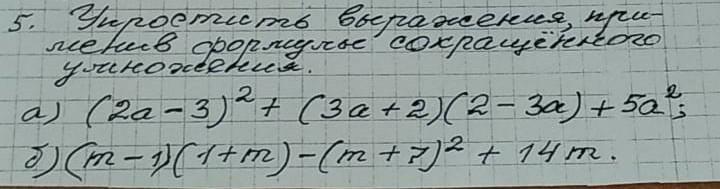 5. Упростить выражения, при-
менив формулы сокращённого
умножения.
а) (2a - 3)² + (3a + 2)(2 - 3a) + 5a²;
б) (m - 1)(1 + m) - (m + 7)² + 14m.